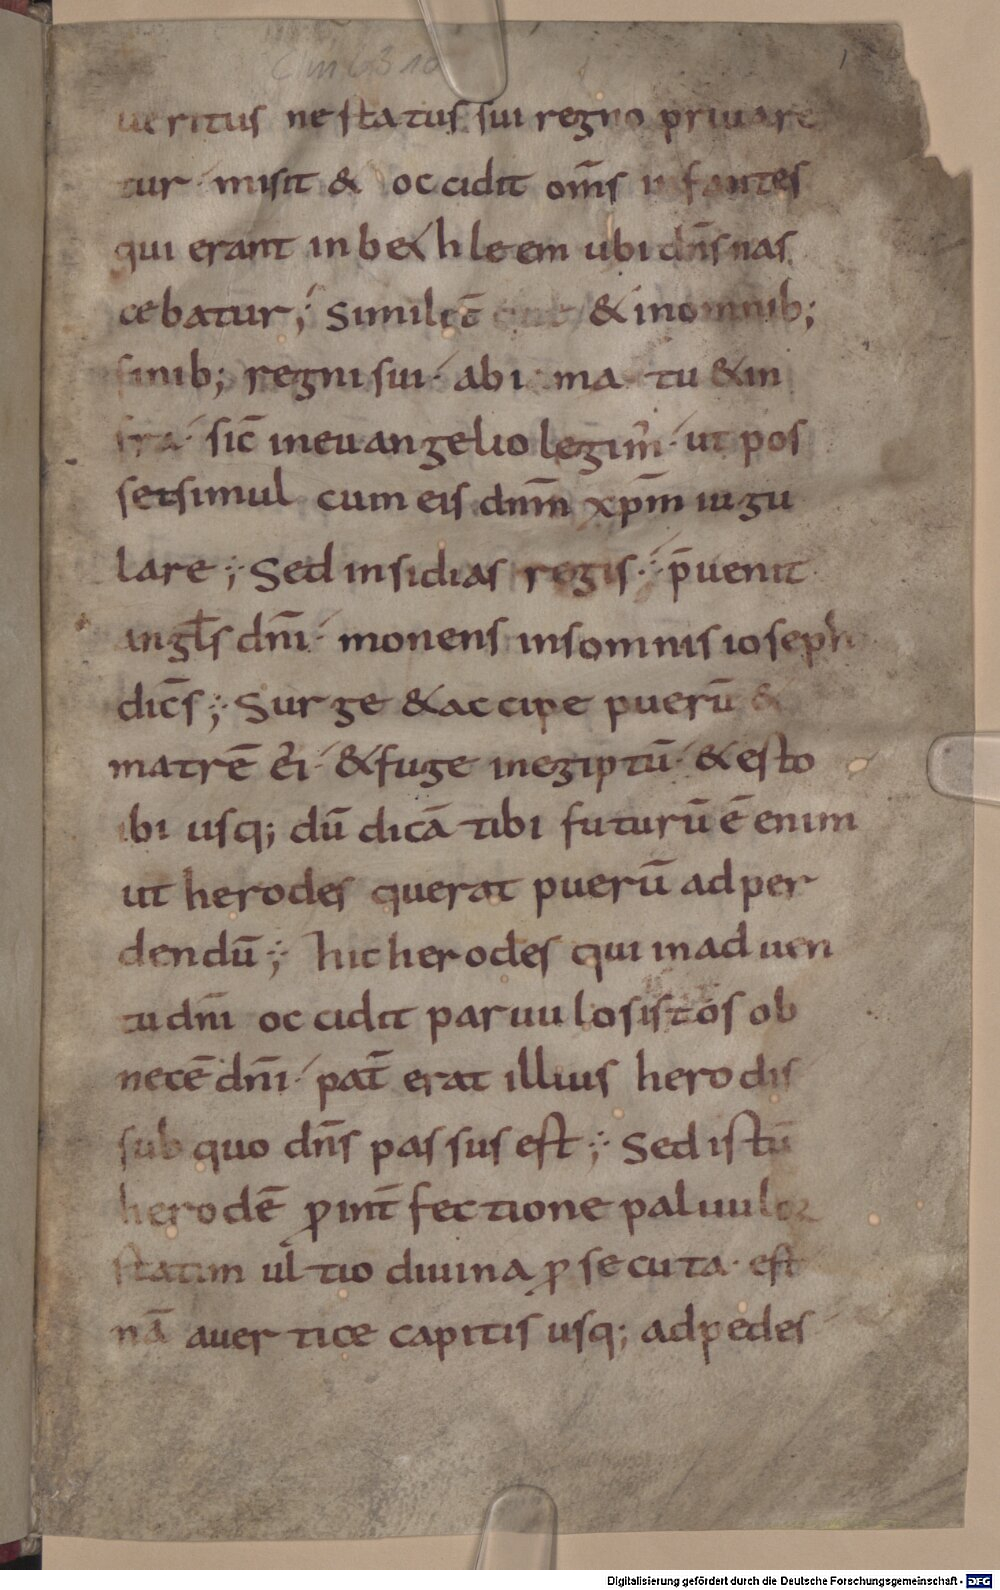 Clm 6310
1
ueritus ne status sui regno priuare
tur misit & occidit om̄s infantes
qui erant in be&hleem ubi dn̄s nas
cebatur; Similit̄ & in omnib;
finib; regni sui· abi ma tu & in
fra· sic̄ in euangelio legim̄· ut pos
set simul cum eis dnm̄ xp̄m iugu
lare; Sed insidias regis· p̄uenit
angl̄s dn̄i· monens in somnis ioseph
dic̄s; Surge & accipe puerū &
matrē ei· & fuge in egiptū· & esto
ibi usq; dū dicā tibi futurū ē enim
ut herodes querat puerū ad per
dendū; hic herodes qui in aduen
tu dn̄i occidit paruulos istos ob
necē dn̄i· pat̄ erat illius herodis
sub quo dn̄s passus est; Sed istū
herodē ꝓ int̄fectione paluuloꝝ
statim ultio diuina ꝓsecuta· est
nā a uertice capitis usq; ad pedes
Digitalisierung gefördert durch die Deutsche Forschungsgemeinschaft - DFG